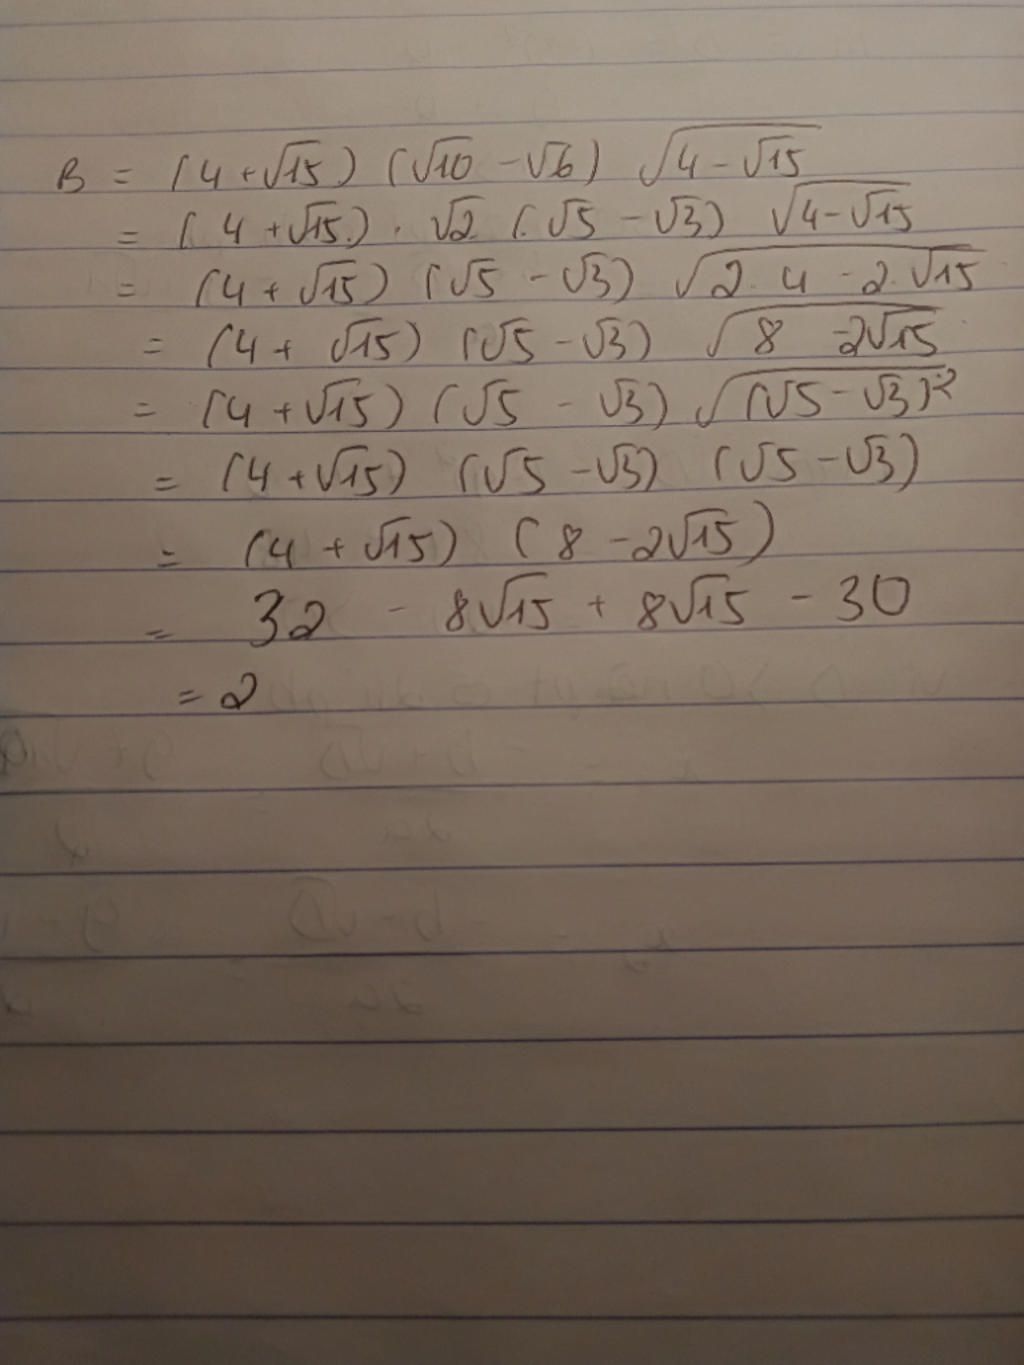 B = (4+√15) (√10 - √6) √(4-√15)
= (4+√15) . √2 (√5 - √3) √(4-√15)
= (4+√15) (√5 - √3) √(2.4 - 2.√15)
= (4+√15) (√5 - √3) √(8 - 2√15)
= (4+√15) (√5 - √3) √((√5 - √3)²)
= (4+√15) (√5 - √3) (√5 - √3)
= (4+√15) (8 - 2√15)
= 32 - 8√15 + 8√15 - 30
= 2